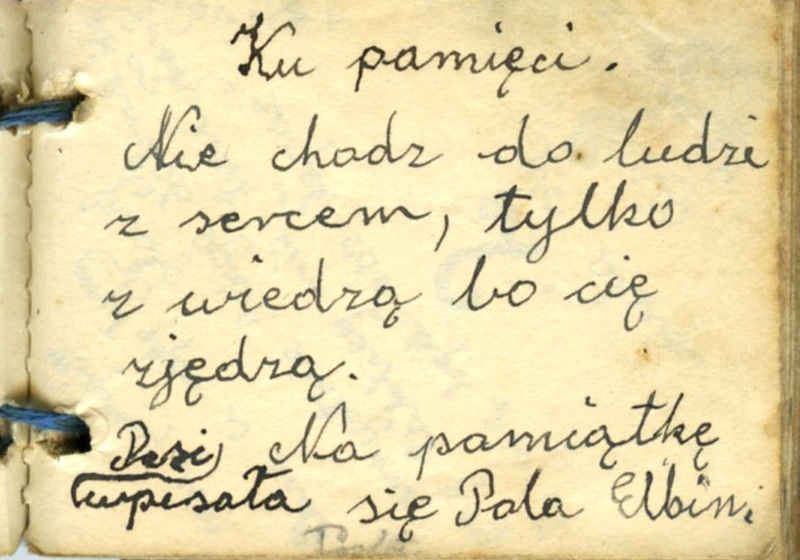 Ku pamięci.
Nie chodz do ludzi
z sercem, tylko
z wiedzą bo cię
zjędzą.
Na pamiątkę
wpisała się Pola